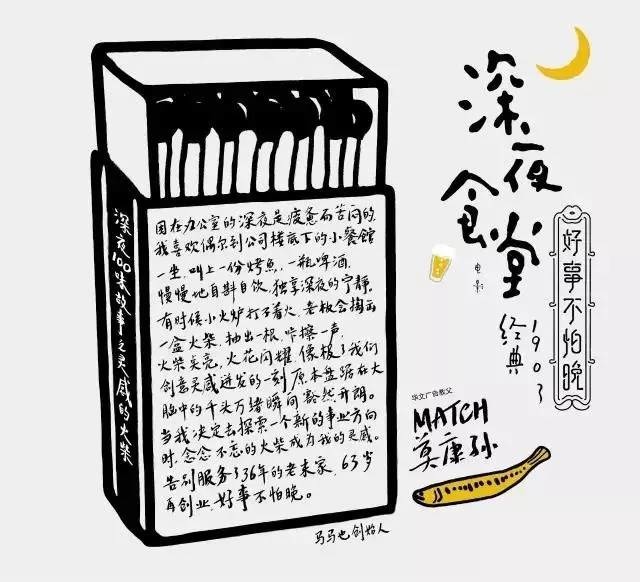 深夜食堂
电影
好事不怕晚
经典1903
华文广告教父
MATCH
莫康孙
深夜100味故事之灵感的火柴
困在办公室的深夜是疲惫而苦闷的,
我喜欢偶尔到公司楼底下的小餐馆
一坐,叫上一份烤鱼,一瓶啤酒,
慢慢地自斟自饮,独享深夜的宁静。
有时候小火炉打不着火,老板会掏出
一盒火柴,抽出一根,咔擦一声,
火柴点亮,火花闪耀,像极了我们
创意灵感迸发的一刻,原本盘踞在大
脑中的千头万绪瞬间豁然开朗。
当我决定去探索一个新的事业方向
时,念念不忘的火柴成为我的灵感。
告别服务了36年的老东家,63岁
再创业,好事不怕晚。
马马也创始人